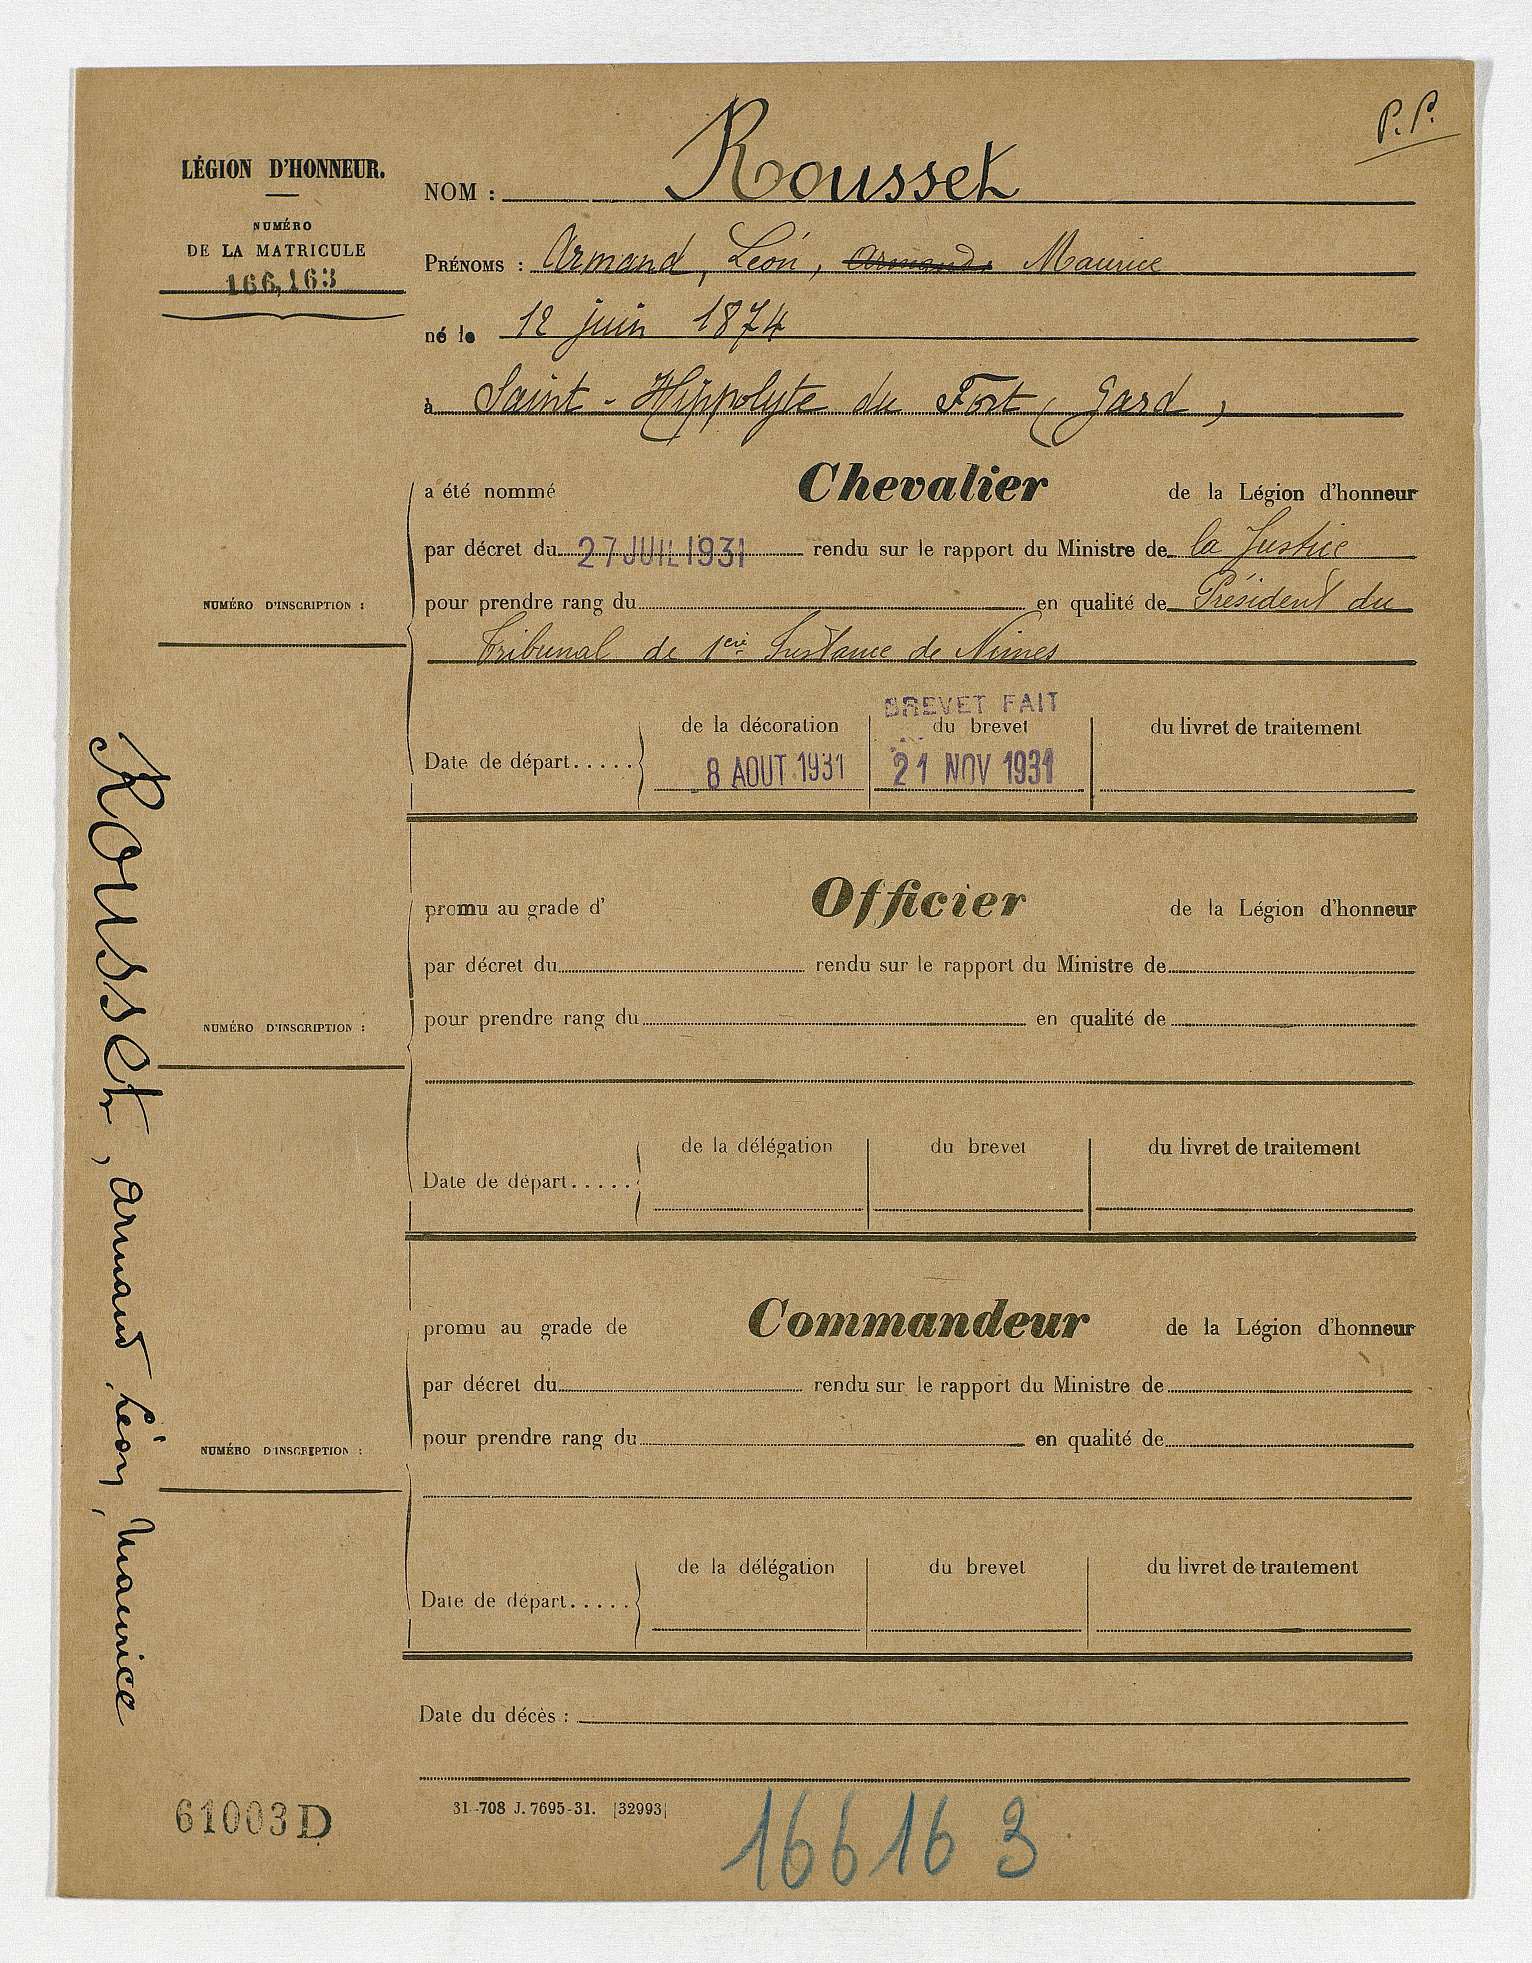 P. P.
LÉGION D'HONNEUR.
NUMÉRO
DE LA MATRICULE
166,163
NOM : Rousset
PRÉNOMS : Armand, Léon, Armand, Maurice
né le 12 juin 1874
à Saint-Hippolyte du Fort (Gard)
a été nommé Chevalier de la Légion d'honneur
par décret du 27 JUIL 1931 rendu sur le rapport du Ministre de la Justice
NUMÉRO D'INSCRIPTION :
pour prendre rang du en qualité de Président du
Tribunal de 1ère Instance de Nimes
BREVET FAIT
de la décoration du brevet du livret de traitement
Date de départ.....
8 AOUT 1931 21 NOV 1931
promu au grade d' Officier de la Légion d'honneur
par décret du rendu sur le rapport du Ministre de
NUMÉRO D'INSCRIPTION :
pour prendre rang du en qualité de
de la délégation du brevet du livret de traitement
Date de départ.....
promu au grade de Commandeur de la Légion d'honneur
par décret du rendu sur le rapport du Ministre de
NUMÉRO D'INSCRIPTION :
pour prendre rang du en qualité de
de la délégation du brevet du livret de traitement
Date de départ.....
Date du décès :
Rousset, Armand, Léon, Maurice
61003D
31-708 J. 7695-31. [32993]
166163